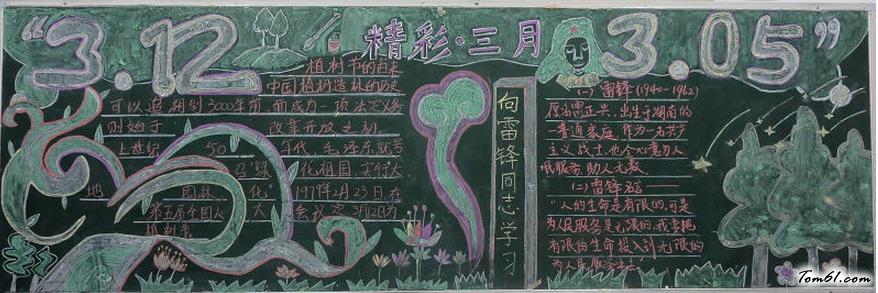 “3.12
精彩·三月
3.05”
植树节的由来
中国植树造林的历史
可以追溯到3000年前,而成为一项法定义务
则始于 改革开放之初
上世纪 50 年代,毛泽东就号
召“绿 化祖国,实行大
地 园林 化”
1979年2月23日在
第五届全国人 大 会议定 3月12日为
植树节
向雷锋同志学习
(一)雷锋(1940-1962)
原名雷正兴,出生于湖南的
一普通家庭,作为一名共产
主义战士,他全心意为人
民服务,助人无数。
(二)雷锋名言——
“人的生命是有限的,可是
为人民服务是无限的,我要把
有限的生命投入到无限的
为人民服务
Tom61.com